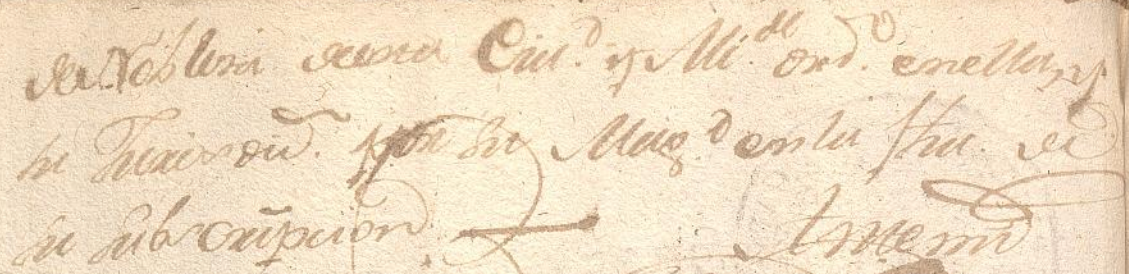 de Nobleza de esta Ciu.d y Alc.de ord.o en ella, y
su Jurisdiz.n por Su Mag.d en la fha. de
su subscripcion
Ante mi